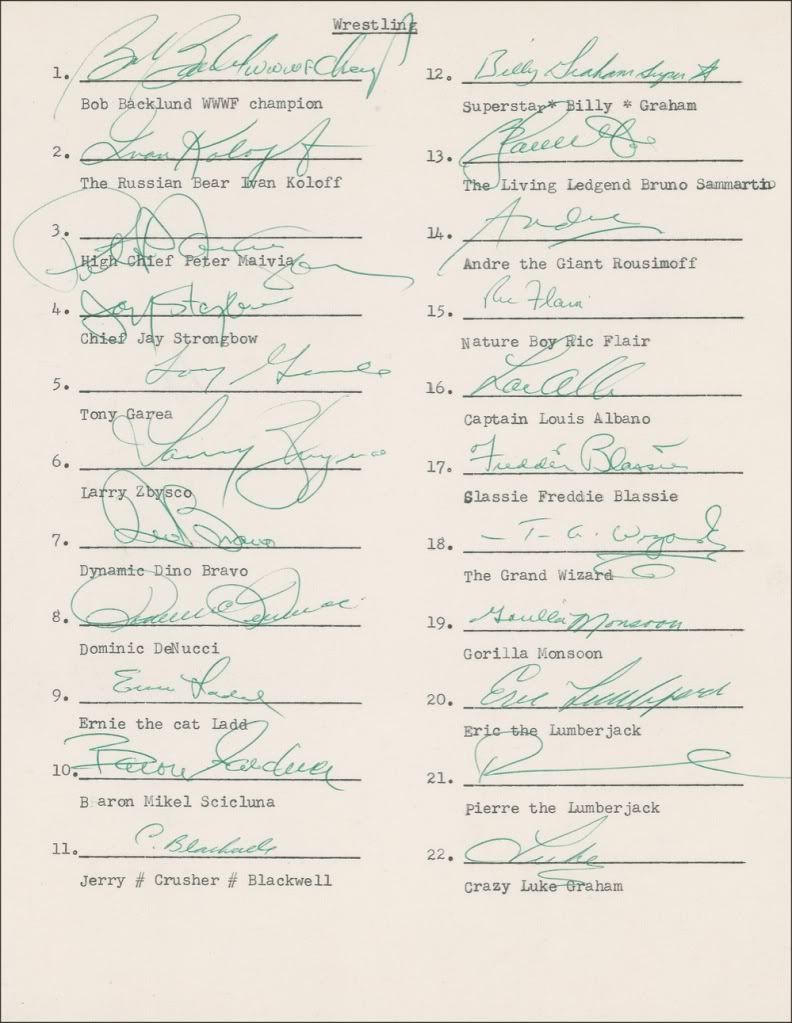 Wrestling
1. Bob Backlund WWWF Champ
Bob Backlund WWWF champion
2. Ivan Koloff
The Russian Bear Ivan Koloff
3. Peter Maivia
High Chief Peter Maivia
4. Jay Strongbow
Chief Jay Strongbow
5. Tony Garea
Tony Garea
6. Larry Zbysco
Larry Zbysco
7. Dino Bravo
Dynamic Dino Bravo
8. Dominic DeNucci
Dominic DeNucci
9. Ernie Ladd
Ernie the cat Ladd
10. Baron Scicluna
Baron Mikel Scicluna
11. C. Blackwell
Jerry # Crusher # Blackwell
12. Billy Graham Super
Superstar* Billy * Graham
13.
The Living Ledgend Bruno Sammartino
14. Andre
Andre the Giant Rousimoff
15. Ric Flair
Nature Boy Ric Flair
16. Lou Albano
Captain Louis Albano
17. Freddie Blassie
Slassie Freddie Blassie
18. T. G. Wizard
The Grand Wizard
19. Gorilla Monsoon
Gorilla Monsoon
20. Eric Lumberjack
Eric the Lumberjack
21.
Pierre the Lumberjack
22. Luke
Crazy Luke Graham